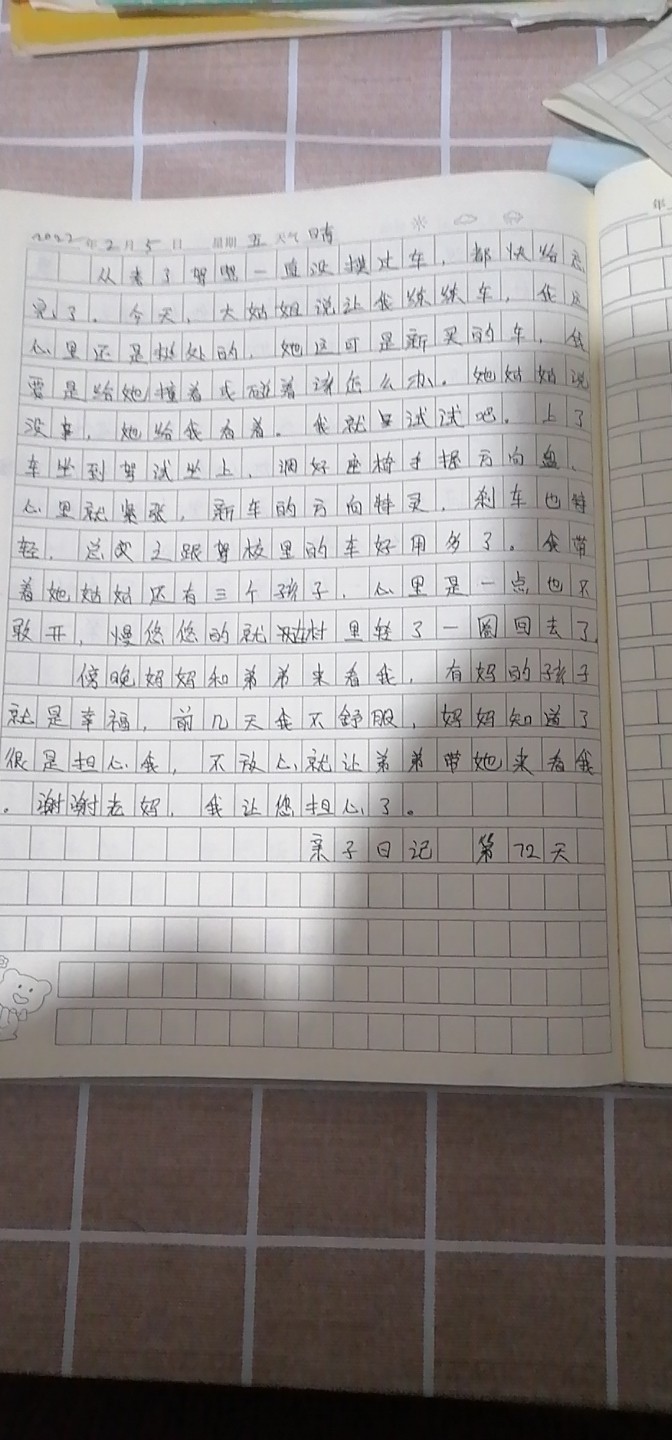 2022年2月5日 星期五 天气晴
从拿了驾照一直没摸过车，都快给忘
完了。今天，大姑姐说让我练练车，我这
心里还是怵的，她这可是新买的车，我
要是给她撞着或碰着该怎么办。她姑姑说
没事，她给我看着。我就试试吧。上了
车坐到驾试坐上，调好座椅手握方向盘、
心里就紧张，新车的方向特灵，刹车也特
轻，总之跟驾校里的车好用多了。我带
着她姑姑还有三个孩子，心里是一点也不
敢开，慢悠悠的就在村里转了一圈回去了
傍晚妈妈和弟弟来看我，有妈的孩子
就是幸福，前几天我不舒服，妈妈知道了
很是担心我，不放心就让弟弟带她来看我
。谢谢老妈，我让您担心了。
亲子日记 第72天
年